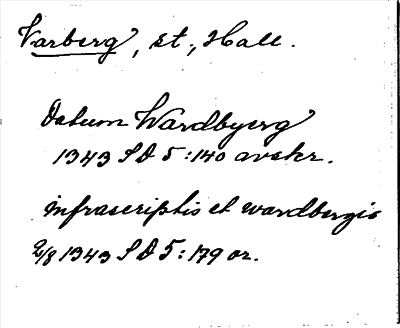 Varberg, st., Hall.
Datum Wardbyerg
1343 SD 5:140 avskr.
infrascriptis et wardbergis
2/8 1343 SD 5:179 or.